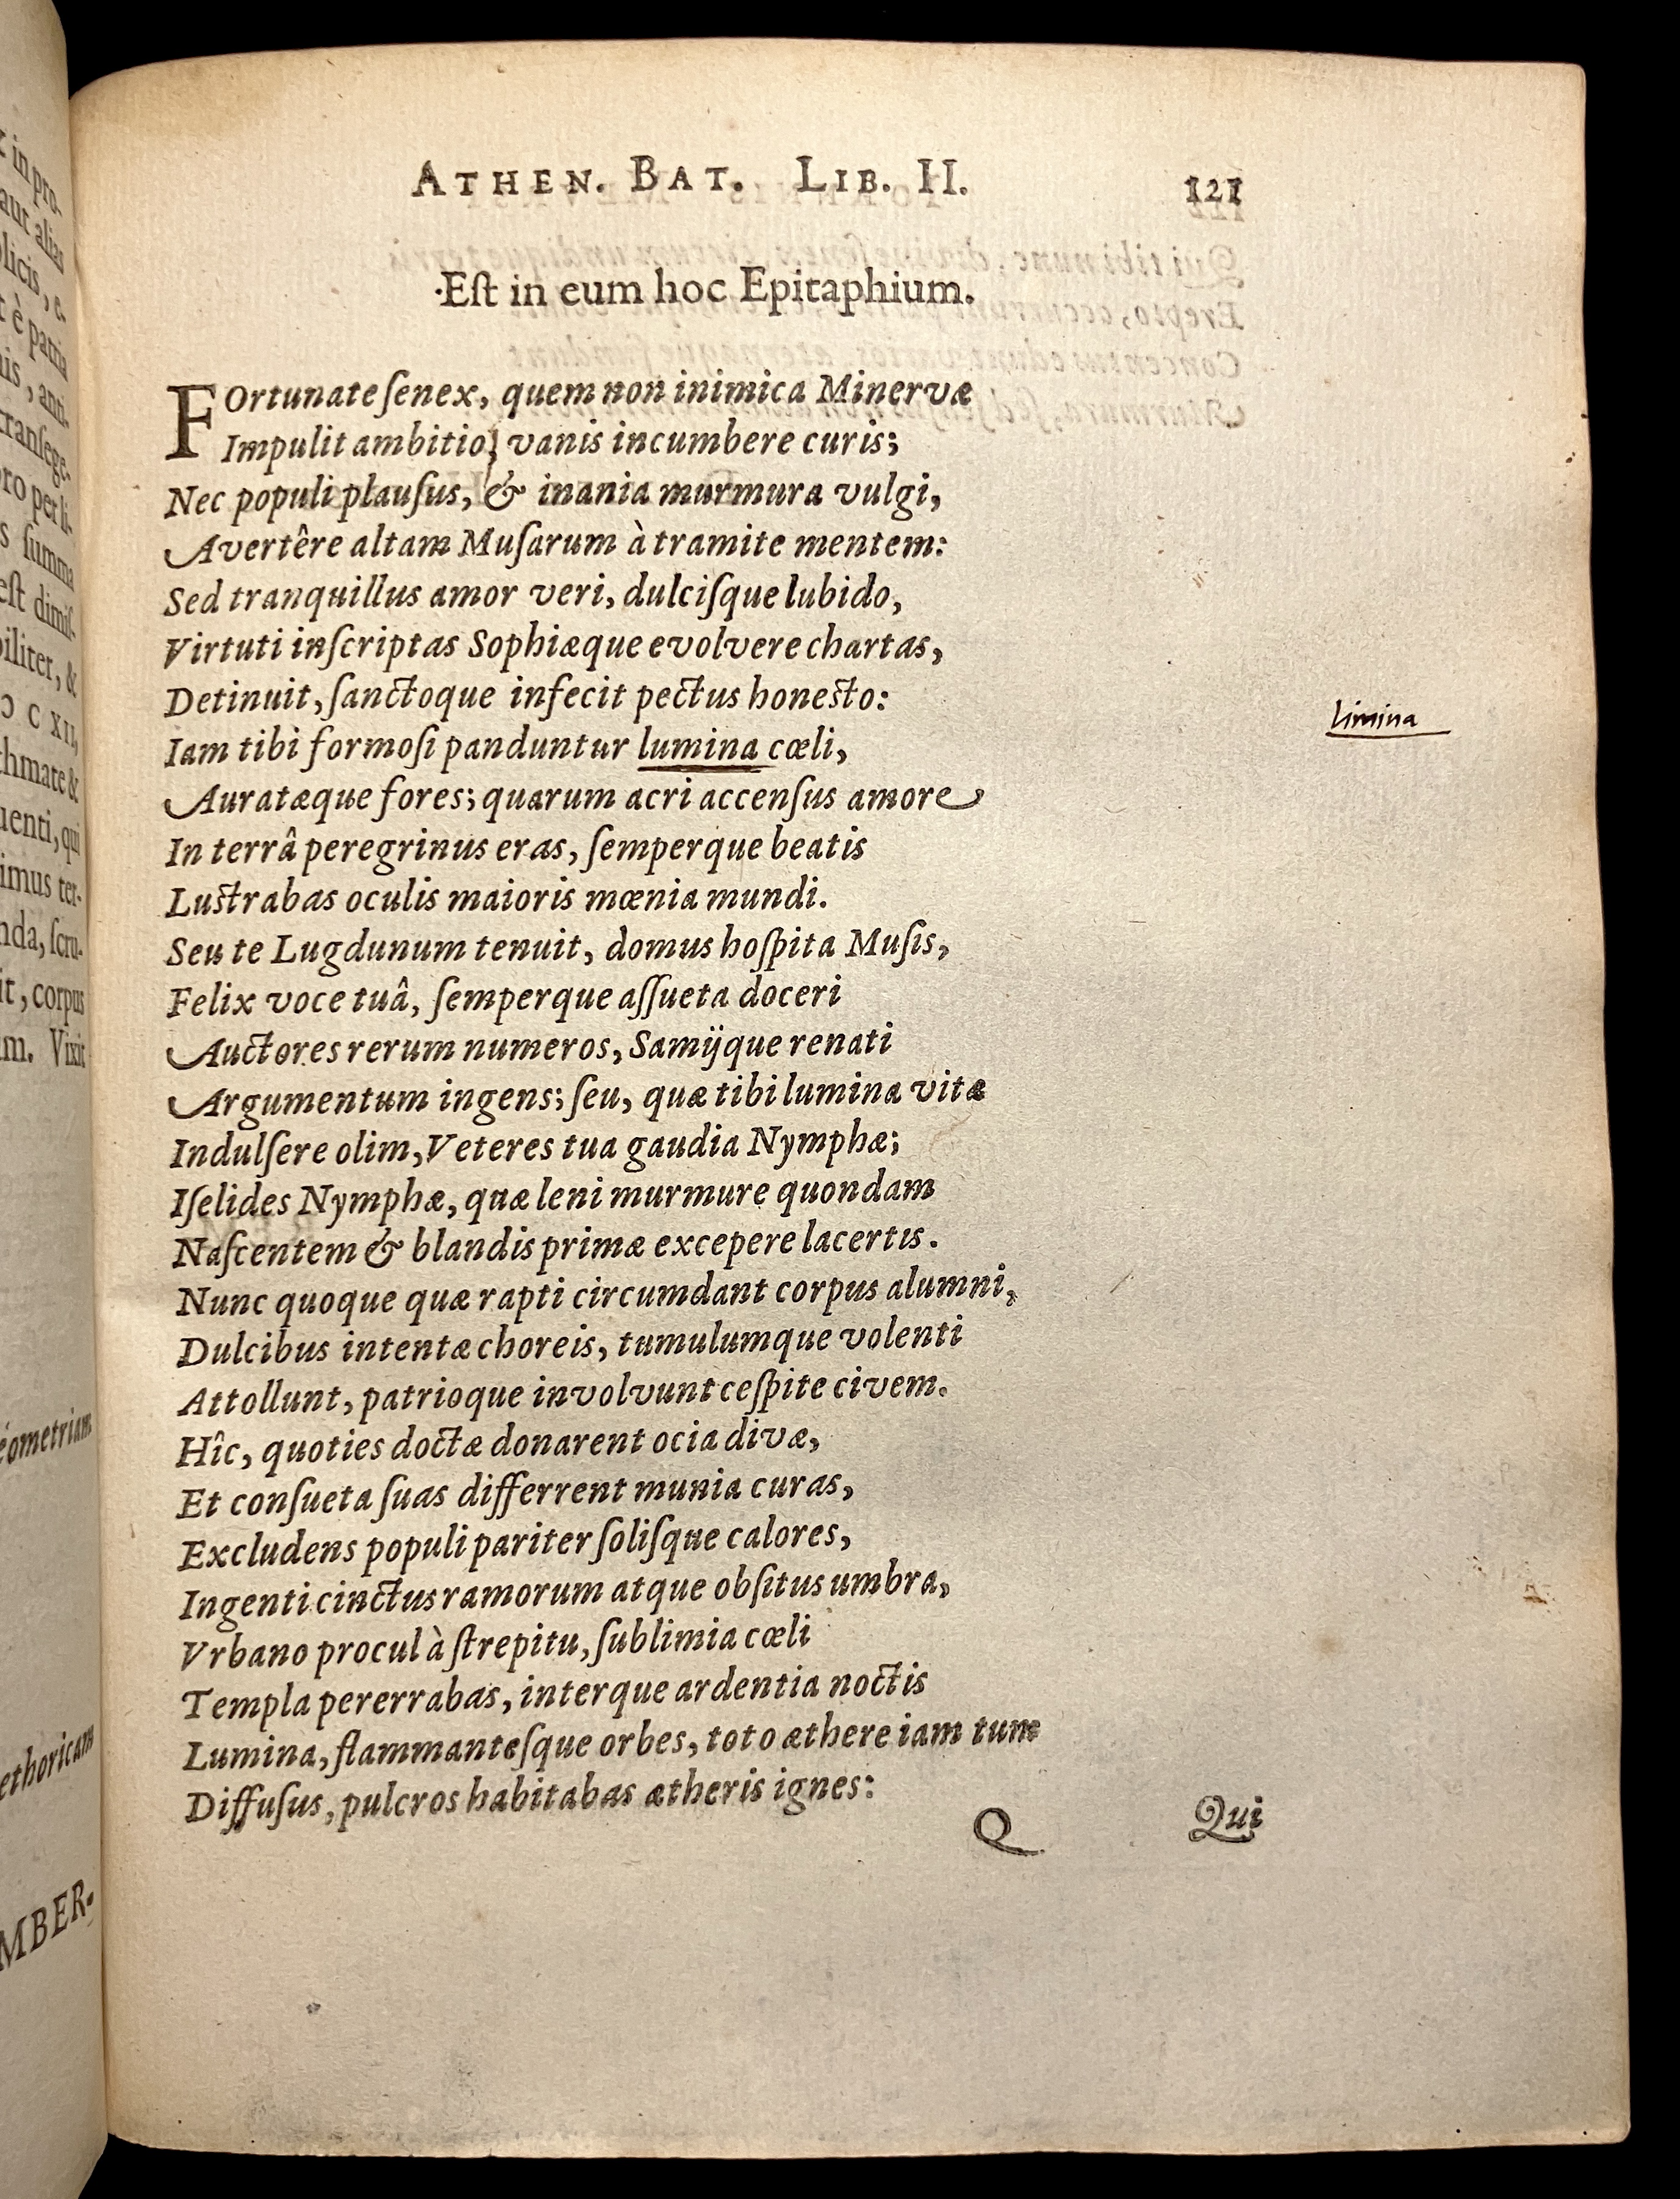 ATHEN. BAT. LIB. II. 121
Eſt in eum hoc Epitaphium.
FOrtunate ſenex, quem non inimica Minervæ
Impulit ambitio, vanis incumbere curis;
Nec populi plauſus, & inania murmura vulgi,
Avertêre altam Muſarum à tramite mentem:
Sed tranquillus amor veri, dulciſque lubido,
Virtuti inſcriptas Sophiæque evolvere chartas,
Detinuit, ſanctoque infecit pectus honesto:
limina
Iam tibi formoſi panduntur lumina cœli,
Aurataæque fores; quarum acri accenſus amore
In terrâ peregrinus eras, ſemperque beatis
Lustrabas oculis maioris mœnia mundi.
Seu te Lugdunum tenuit, domus hoſpita Muſis,
Felix voce tuâ, ſemperque aſſueta doceri
Auctores rerum numeros, Samijque renati
Argumentum ingens; ſeu, quæ tibi lumina vitæ
Indulſere olim, Veteres tua gaudia Nymphæ;
Iſelides Nymphæ, quæ leni murmure quondam
Naſcentem & blandis primæ excepere lacertis.
Nunc quoque quæ rapti circumdant corpus alumni,
Dulcibus intentæ choreis, tumulumque volenti
Attollunt, patrioque involvunt ceſpite civem.
Hîc, quoties doctæ donarent ocia divæ,
Et conſueta ſuas differrent munia curas,
Excludens populi pariter ſoliſque calores,
Ingenti cinctus ramorum atque obſitus umbra,
Vrbano procul à ſtrepitu, ſublimia cœli
Templa pererrabas, interque ardentia noctis
Lumina, flammanteſque orbes, toto æthere iam tum
Diffuſus, pulcros habitabas ætheris ignes:
Q Qui